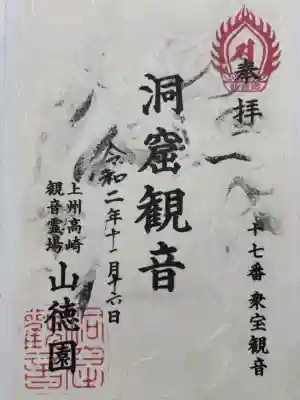 奉拝
十七番 衆宝観音
洞窟観音
令和二年十一月十六日
上州高崎
観音霊場
山徳園